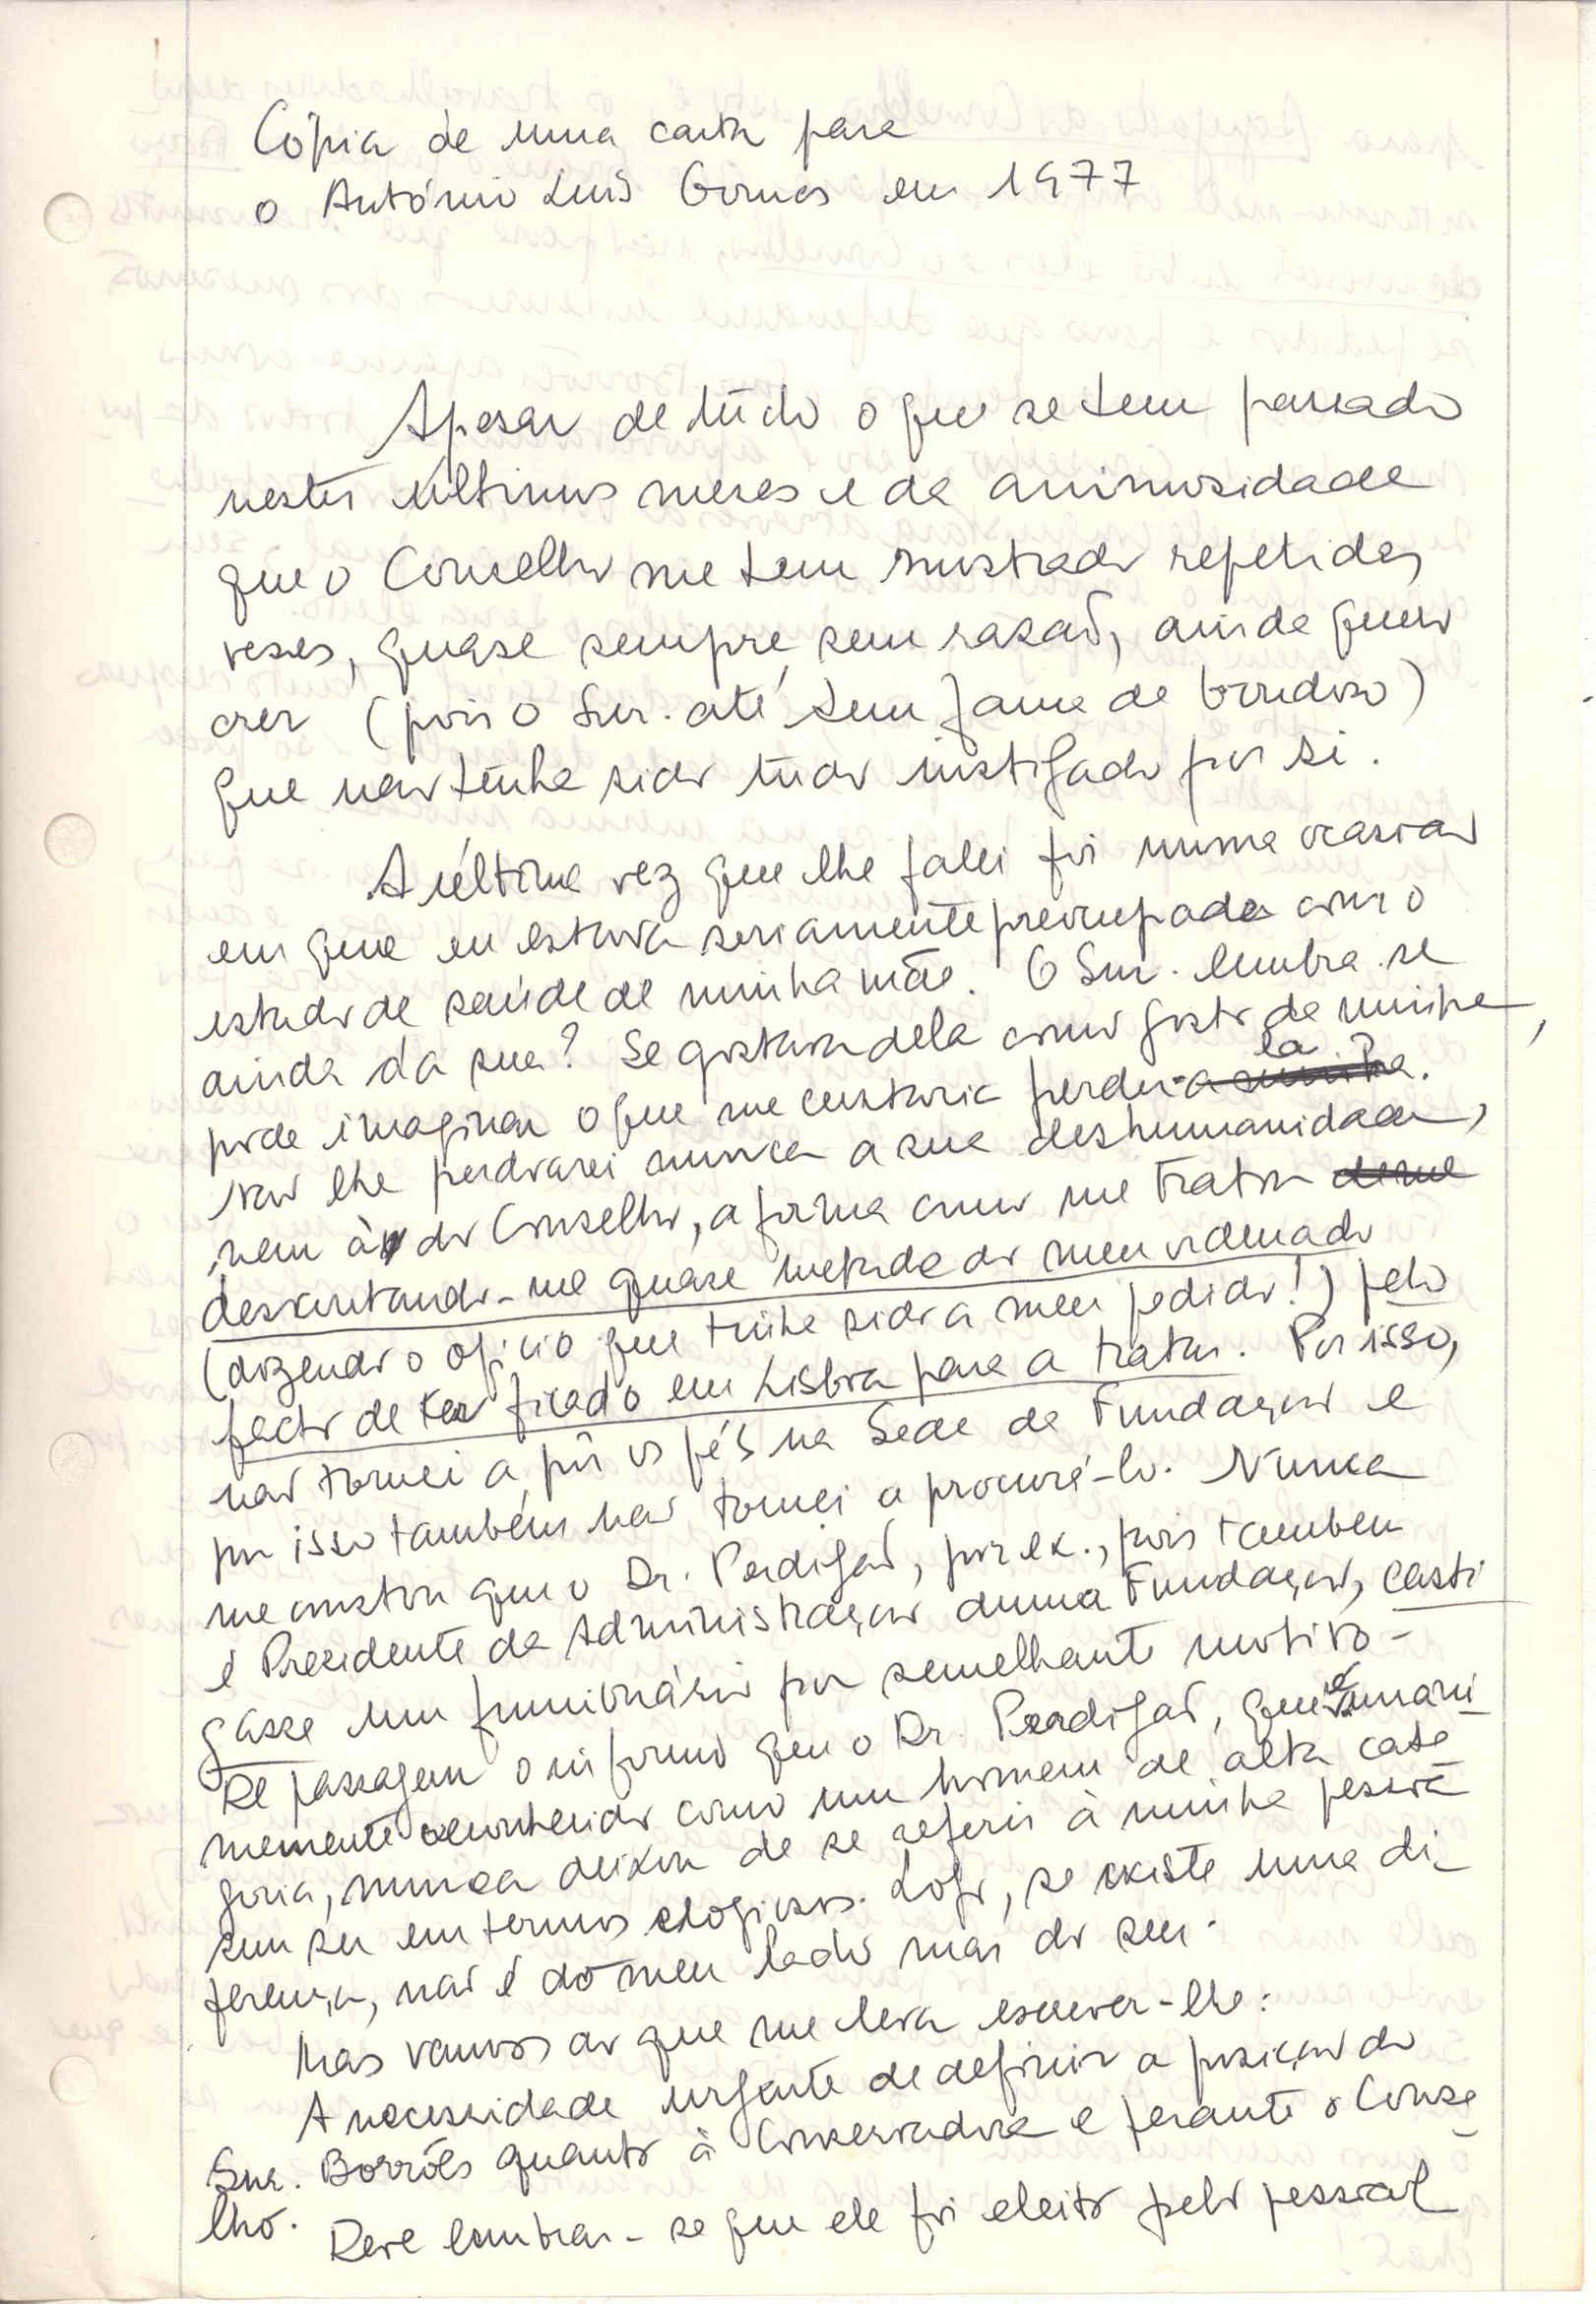 Cópia de uma carta para
o António Luís Gomes em 1977
Apesar de túdo o que se tem passado
nestes últimos meses e da animosidade
que o Conselho me tem mostrado repetidas
veses, quase sempre sem rasaõ, ainda quero
crer (pois o Snr. até tem fama de bondoso)
que naõ tenha sido tudo instigado por si.
A última vez que lhe falei foi numa ocasiaõ
em que eu estava seriamente preocupada com o
estado de saúde de minha mãe. O Snr. lembra-se
ainda da sua? Se gostava dela como gosto da minha,
pode imaginar o que me custaria perde-la.
Naõ lhe perdoarei nunca a sua deshumanidade,
nem à do Conselho, a forma como me tratou
descontando-me quase metade do meu ordenado
(dizendo o ofício que tinha sido a meu pedido!) pelo
facto de ter ficado em Lisboa para a tratar. Por isso,
naõ tornei a pôr os pés na Sede da Fundaçaõ e
por isso também naõ tornei a procurá-lo. Nunca
me constou que o Dr. Perdigaõ, por ex., pois tambem
é Presidente da Administraçaõ duma Fundaçaõ, casti
gasse um funcionário por semelhante motivo-
De passagem o informo que o Dr. Perdigaõ, que é unani-
memente reconhecido como um homem de alta cate-
goria, nunca deixou de se referir à minha pessoa
senão em termos elogiosos. Logo, se existe uma di-
ferença, naõ é do meu lado mas do seu.
Mas vamos ao que me leva escrever-lhe:
A necessidade urgente de definir a posiçaõ do
Snr. Borrões quanto à Conservadora e perante o Conse-
lho.
Deve lembrar-se que ele foi eleito pelo pessoal